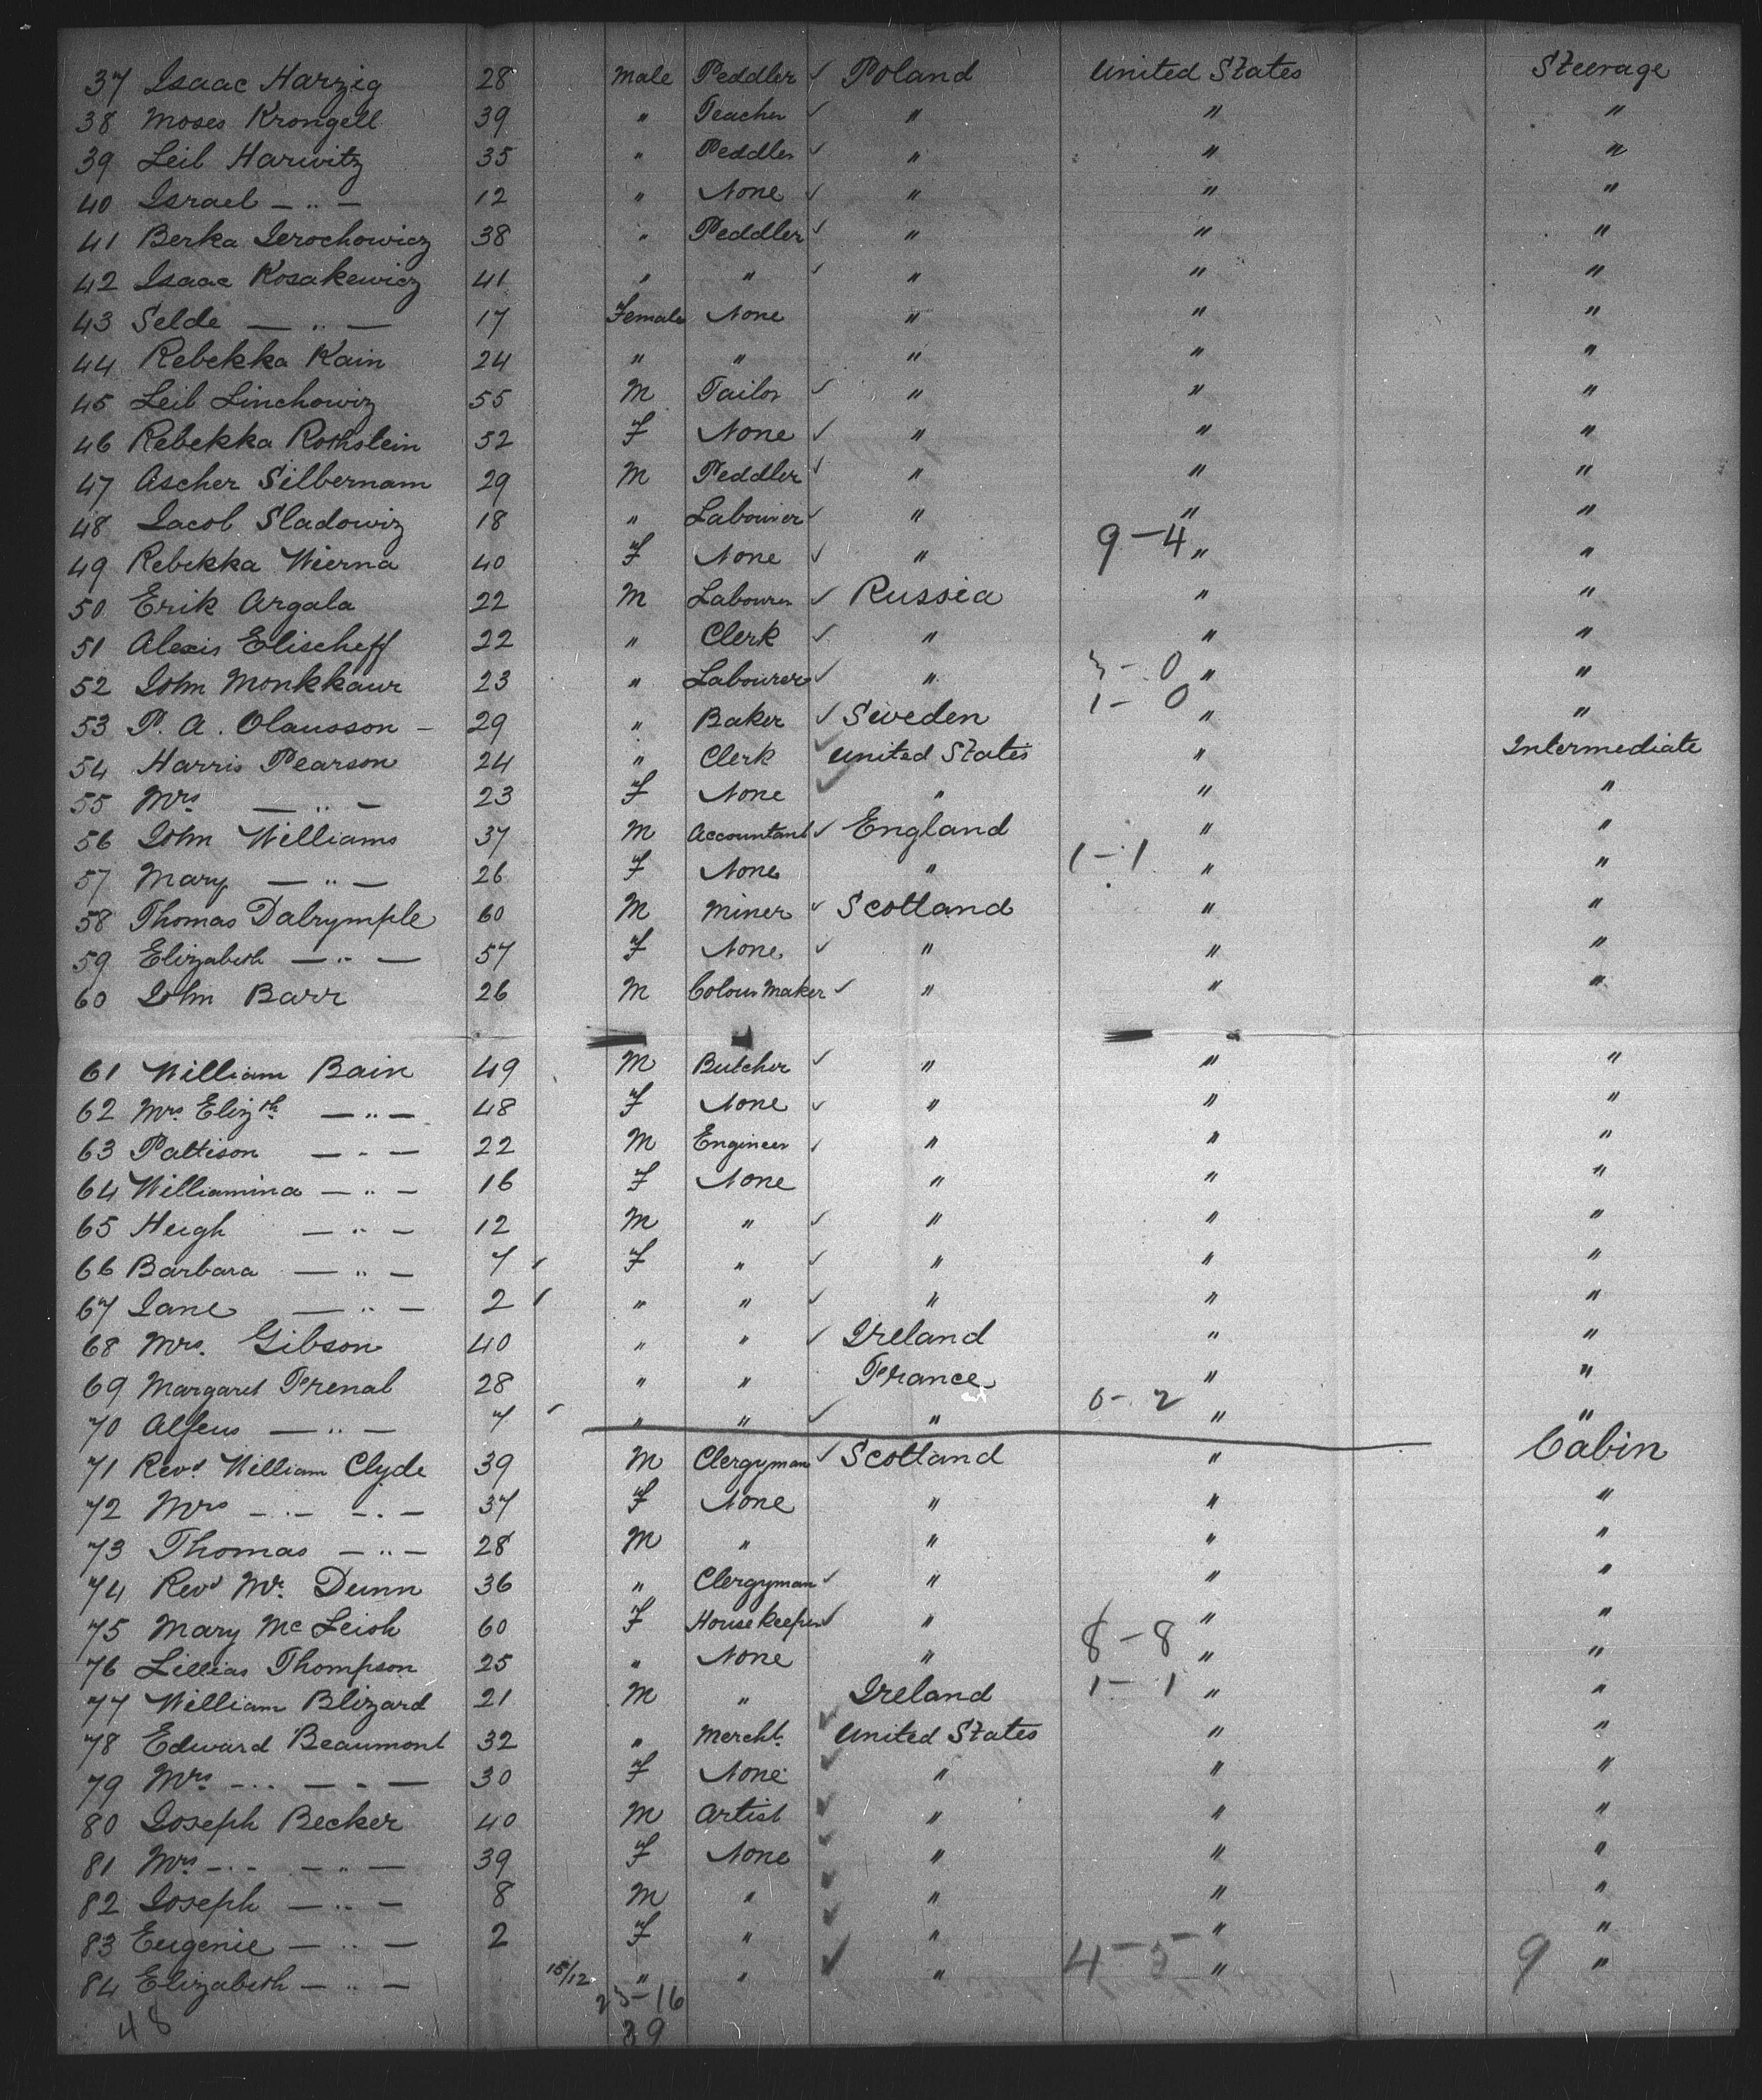 37 Isaac Harzig 28 Male Peddler ✓ Poland United States Steerage
38 Moses Krongell 39 " Teacher ✓ " " "
39 Leib Harwitz 35 " Peddler ✓ " " "
40 Israel — " — 12 " None ✓ " " "
41 Berka Jerochowicz 38 " Peddler ✓ " " "
42 Isaac Kosakewicz 41 " " ✓ " " "
43 Selde — " — 17 Female None " " "
44 Rebekka Kain 24 " " " " "
45 Leib Linchowiz 55 M Tailor ✓ " " "
46 Rebekka Rothstein 52 F None ✓ " " "
47 Ascher Silbernam 29 M Peddler ✓ " " "
48 Jacob Sladowiz 18 " Labourer ✓ " " "
49 Rebekka Wierna 40 F None ✓ " 9-4 " "
50 Erik Argala 22 M Labourer ✓ Russia " "
51 Alexis Elischeff 22 " Clerk ✓ " " "
52 John Monkkaur 23 " Labourer ✓ " 3-0 " "
53 P. A. Olausson — 29 " Baker ✓ Sweden 1-0 " "
54 Harris Pearson 24 " Clerk ✓ United States " Intermediate
55 Mrs — " — 23 F None ✓ " " "
56 John Williams 37 M Accountant ✓ England " "
57 Mary — " — 26 F None " 1-1 " "
58 Thomas Dalrymple 60 M Miner ✓ Scotland " "
59 Elizabeth — " — 57 F None ✓ " " "
60 John Barr 26 M Colour Maker ✓ " " "
61 William Bain 49 M Butcher ✓ " " "
62 Mrs Elizth — " — 48 F None ✓ " " "
63 Pattison — " — 22 M Engineer ✓ " " "
64 Williamina — " — 16 F None " " "
65 Hugh — " — 12 M " ✓ " " "
66 Barbara — " — 7 F " ✓ " " "
67 Jane — " — 2 " " ✓ " " "
68 Mrs. Gibson 40 " " ✓ Ireland " "
69 Margaret Prenal 28 " " France " "
70 Alfens — " — 7 " " ✓ " 0-2 " "
71 Revd William Clyde 39 M Clergyman ✓ Scotland " Cabin
72 Mrs — " — " — 37 F None " " "
73 Thomas — " — 28 M " " " "
74 Revd Mr. Dunn 36 " Clergyman ✓ " " "
75 Mary McLeish 60 F Housekeeper ✓ " " "
76 Lillias Thompson 25 " None " 8-8 " "
77 William Blizard 21 M " Ireland 1-1 " "
78 Edward Beaumont 32 " Mercht. ✓ United States " "
79 Mrs — " — " — 30 F None ✓ " " "
80 Joseph Becker 40 M Artist ✓ " " "
81 Mrs — " — " — 39 F None ✓ " " "
82 Joseph — " — 8 M " ✓ " " "
83 Eugenie — " — 2 F " ✓ " " "
84 Elizabeth — " — 15/12 " " ✓ " 4-5 " 9 "
23-16
48 39